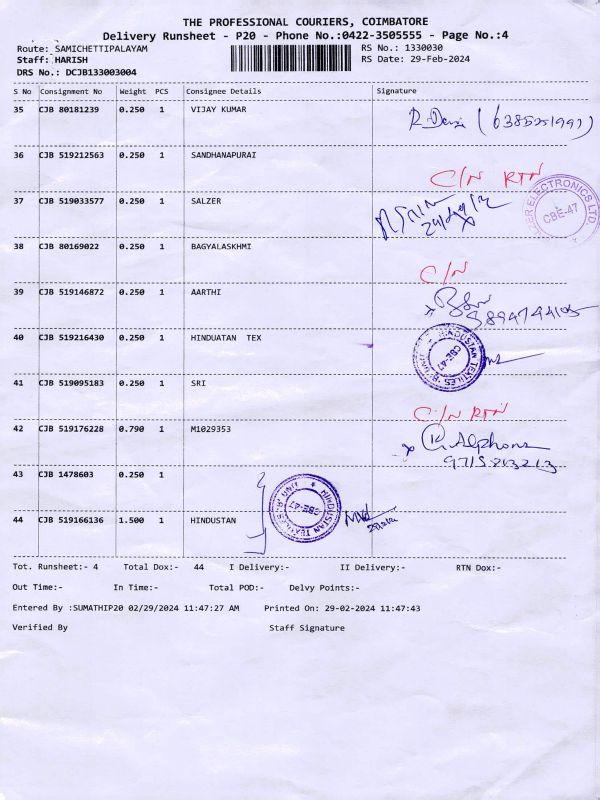 THE PROFESSIONAL COURIERS, COIMBATORE
Delivery Runsheet - P20 - Phone No.:0422-3505555 - Page No.:4
Route: SAMICHETTIPALAYAM RS No.: 1330030
Staff: HARISH RS Date: 29-Feb-2024
DRS No.: DCJB133003004
S No Consignment No Weight PCS Consignee Details Signature
35 CJB 80181239 0.250 1 VIJAY KUMAR
36 CJB 519212563 0.250 1 SANDHANAPURAI
C/N RTN
37 CJB 519033577 0.250 1 SALZER
ELECTRONICS LTD
CBE-47
38 CJB 80169022 0.250 1 BAGYALASKHMI
C/N
39 CJB 519146872 0.250 1 AARTHI
40 CJB 519216430 0.250 1 HINDUATAN TEX
HINDUSTAN TEXTILES
CBE-47
41 CJB 519095183 0.250 1 SRI
C/N RTN
42 CJB 519176228 0.790 1 M1029353
K. Alphons
9715213213
43 CJB 1478603 0.250 1
44 CJB 519166136 1.500 1 HINDUSTAN
HINDUSTAN TEXTILES
CBE-47
Tot. Runsheet:- 4 Total Dox:- 44 I Delivery:- II Delivery:- RTN Dox:-
Out Time:- In Time:- Total POD:- Delvy Points:-
Entered By :SUMATHIP20 02/29/2024 11:47:27 AM Printed On: 29-02-2024 11:47:43
Verified By Staff Signature